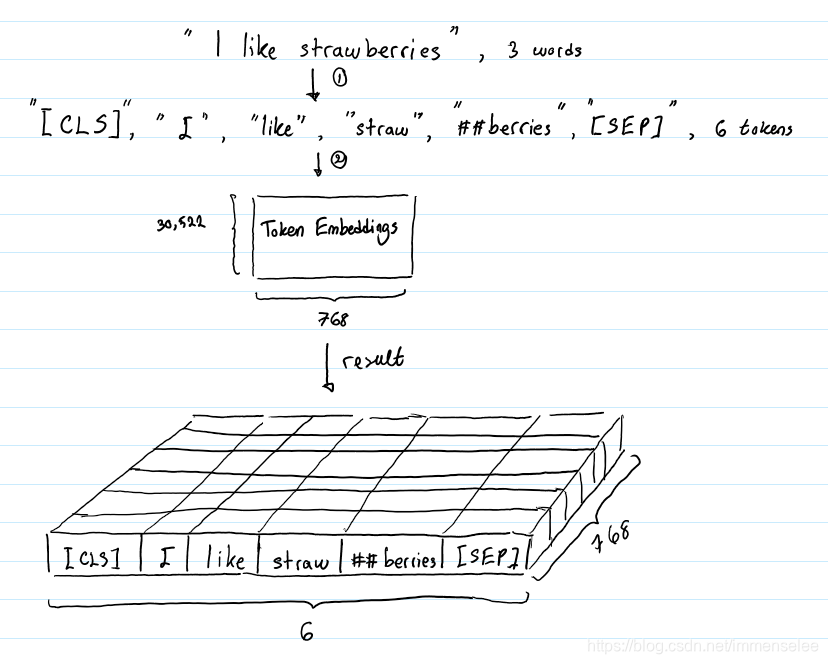 "I like strawberries", 3 words
①
"[CLS]", "I", "like", "straw", "##berries", "[SEP]", 6 tokens
②
30,522
Token Embeddings
768
result
[CLS] I like straw ##berries [SEP]
768
6
https://blog.csdn.net/immenselee